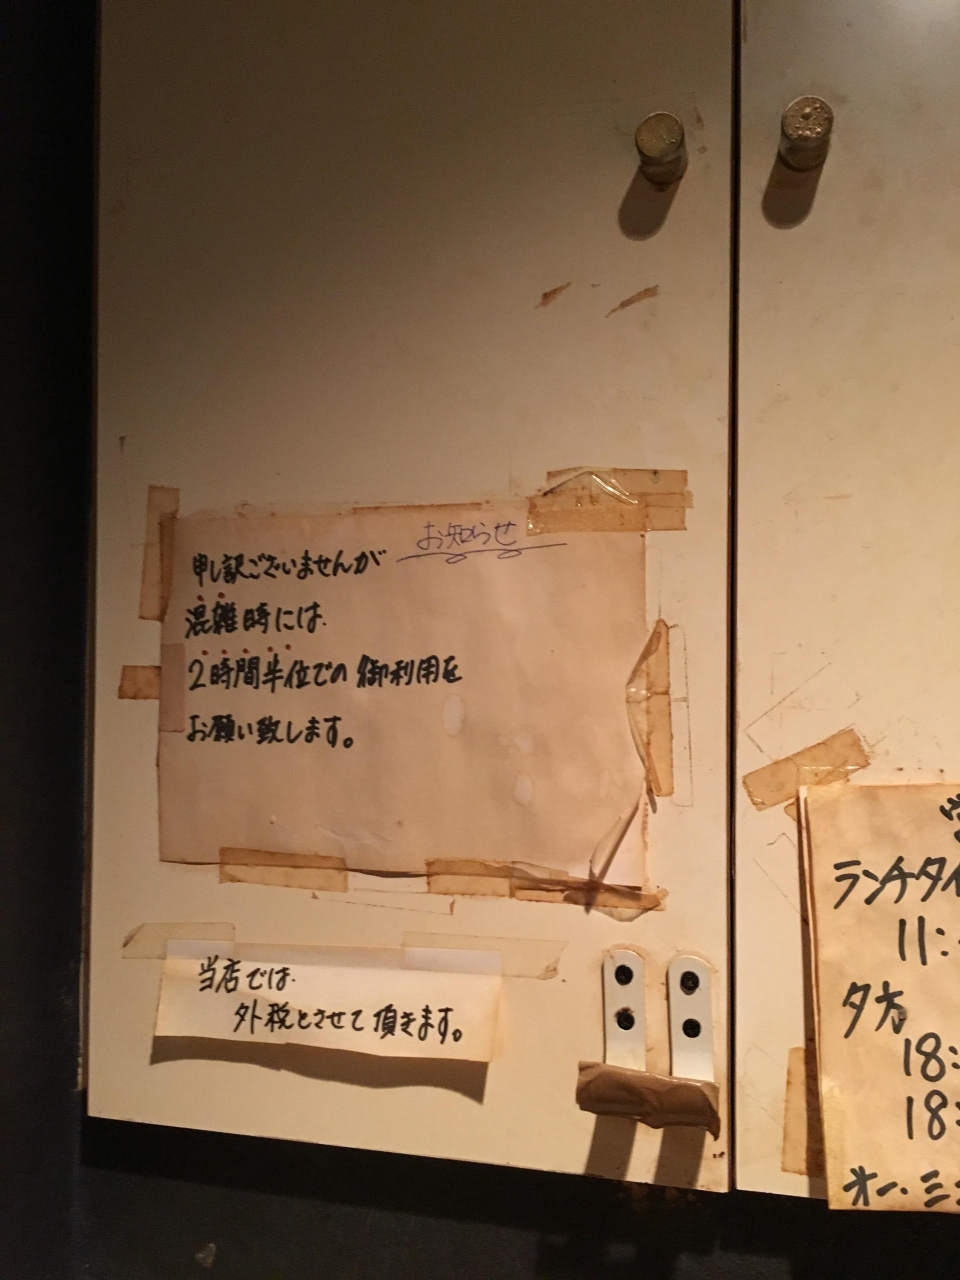 お知らせ
申し訳ございませんが
混雑時には
2時間半位での御利用を
お願い致します。
当店では
外税とさせて頂きます。
ランチタイ
11:
夕方
18:
18:
オー.ミ